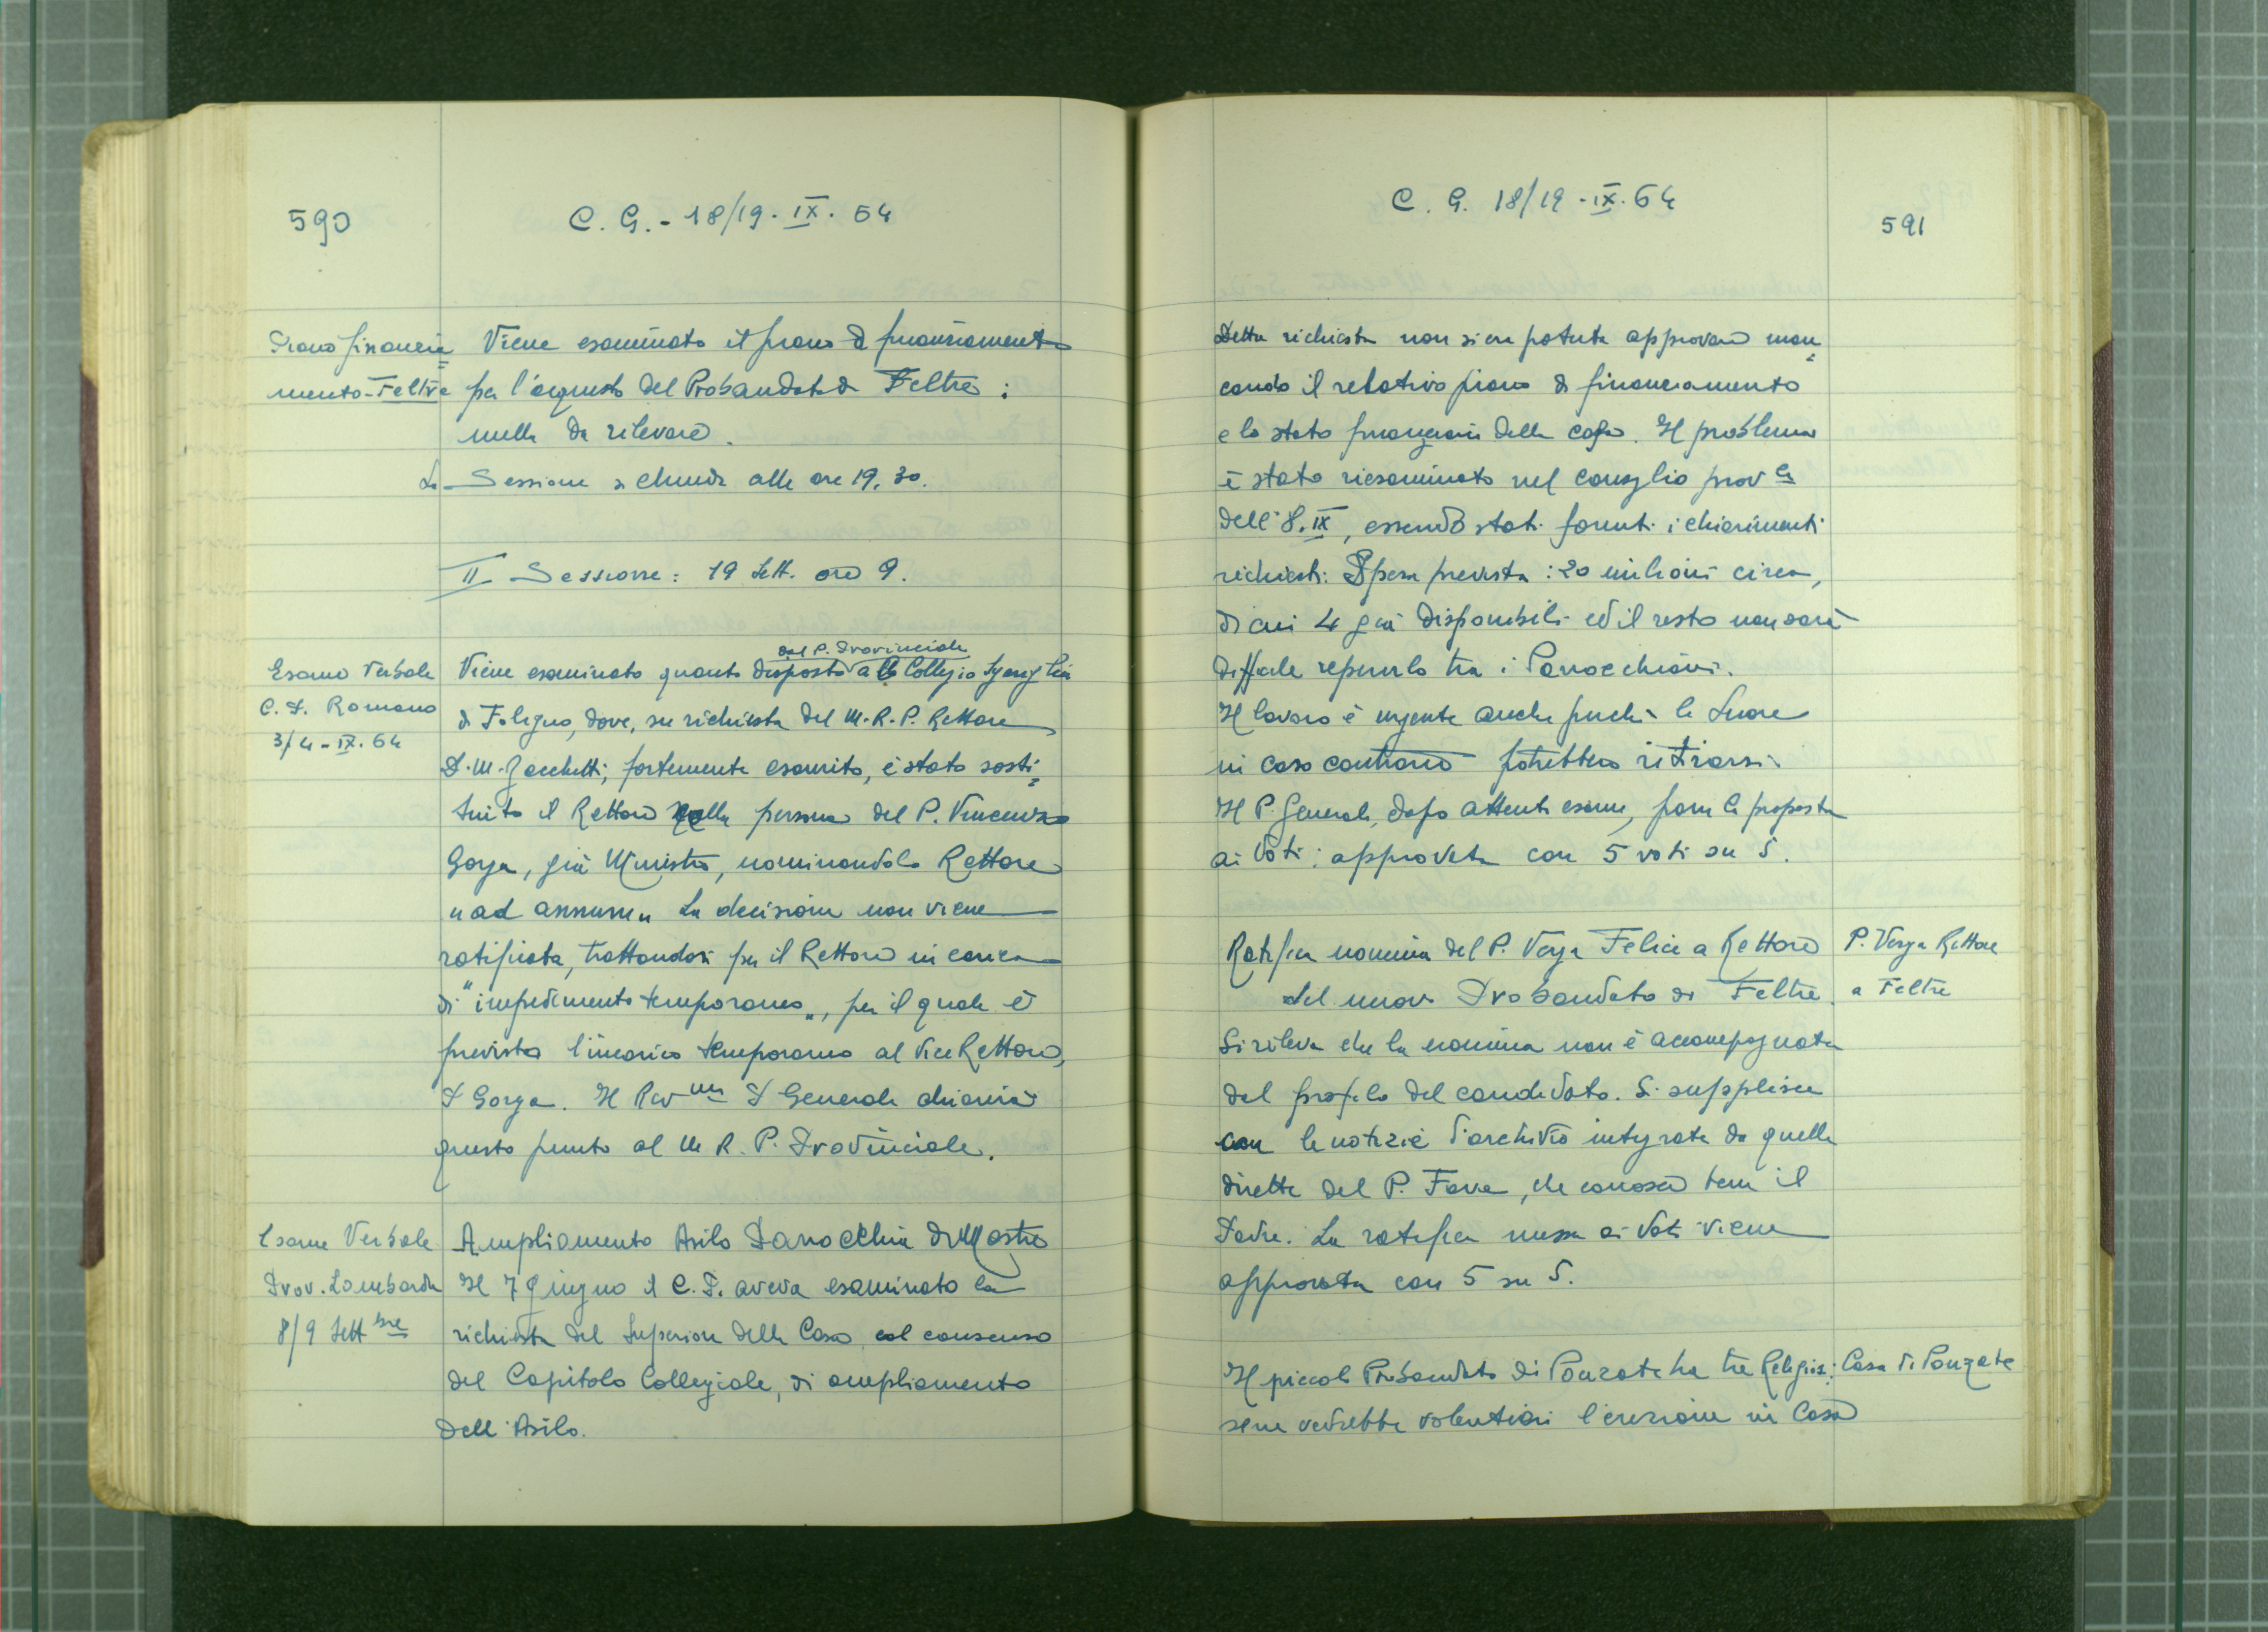 590
C. G. - 18/19 - IX. 64
Piano finanzia=
mento - Feltre
Viene esaminato il piano di finanziamento
per l'acquisto del Probandato di Feltre:
nulla da rilevare.
La Sessione si chiude alle ore 19,30.
II Sessione: 19 Sett. ore 9.
Esame Verbale
C. P. Romano
3/4 - IX. 64
dal P. Provinciale
Viene esaminato quanto disposto al Collegio Sgariglia
di Foligno, dove, su richiesta del M. R. P. Rettore
P. M. Zacchetti, fortemente esaurito, è stato sosti=
tuito il Rettore nella persona del P. Vincenzo
Gorga, già Ministro, nominandolo Rettore
"ad annum". La decisione non viene
ratificata, trattandosi per il Rettore in carica
di "impedimento temporaneo", per il quale è
previsto l'incarico temporaneo al Vice Rettore,
P. Gorga. Il Rev.mo P. Generale chiarirà
questo punto al M. R. P. Provinciale.
Esame Verbale
Prov. Lombarda
8/9 Settbre
Ampliamento Asilo Parrocchia di Mestre
Il 7 giugno il C. P. aveva esaminato la
richiesta del Superiore della Casa, col consenso
del Capitolo Collegiale, di ampliamento
dell'Asilo.
C. G. 18/19 - IX. 64
591
Detta richiesta non si era potuta approvare man=
cando il relativo piano di finanziamento
e lo stato finanziario della casa. Il problema
è stato riesaminato nel consiglio prov.le
dell'8. IX, essendo stati forniti i chiarimenti
richiesti: Spesa prevista: 20 milioni circa,
di cui 4 già disponibili ed il resto non sarà
difficile reperirlo tra i Parrocchiani.
Il lavoro è urgente anche perchè le Suore
in caso contrario potrebbero ritirarsi.
Il P. Generale, dopo attento esame, pone la proposta
ai voti: approvata con 5 voti su 5.
Ratifica nomina del P. Verga Felice a Rettore
del nuovo Probandato di Feltre.
P. Verga Rettore
a Feltre
Si rileva che la nomina non è accompagnata
dal profilo del candidato. Si supplisce
con le notizie d'archivio integrate da quelle
dirette del P. Fava, che conosce bene il
Padre. La ratifica messa ai voti viene
approvata con 5 su 5.
Il piccolo Probandato di Ponzate ha tre Religiosi:
Casa di Ponzate
se ne vedrebbe volentieri l'erezione in Casa